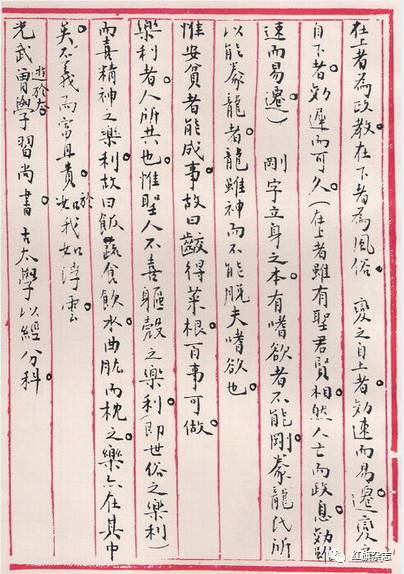 在上者為政教在下者為風俗。變之自上者効速而易遷。變之
自下者効遲而可久。(在上者雖有聖君賢相然人亡而政息。効雖
速而易遷) 剛字立身之本有嗜欲者不能剛。豢龍氏所
以能豢龍者龍雖神而不能脫夫嗜欲也。
惟安貧者能成事。故曰齩得菜根百事可做。
樂利者人所共也。惟聖人不喜軀殼之樂利(即世俗之樂利)
而喜精神之樂利。故曰飯蔬食飲水曲肱而枕之。樂亦在其中
矣不義而富且貴。於我如浮雲。
光武曾遊於太學習尚書。古太學以經分科。
红旗杂志